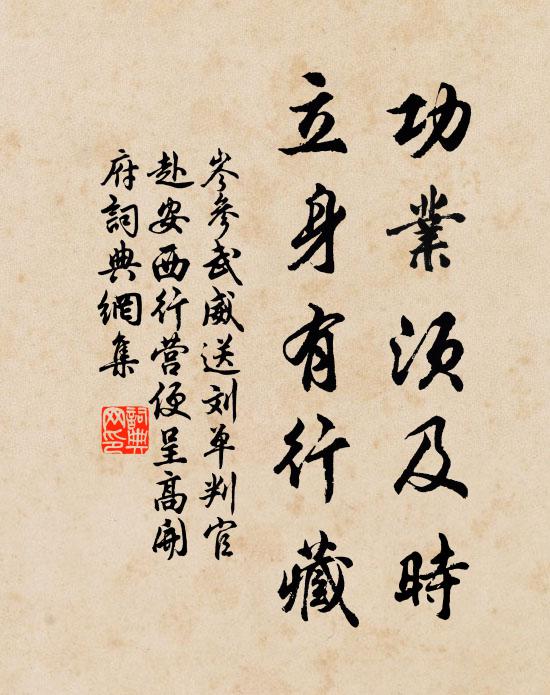 功業须及時
立身有行藏
岑參武威送刘单判官
赴安西行营便呈高開
府詞典網集
詞典
网印